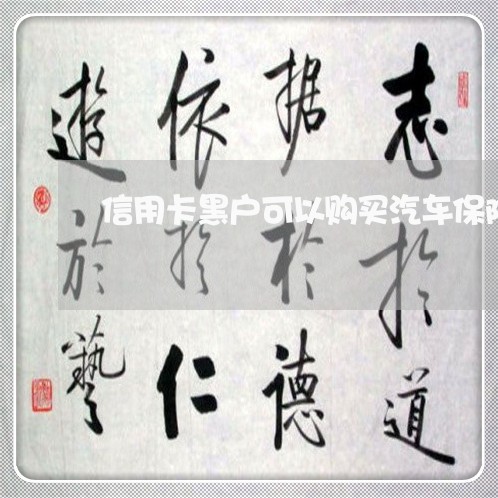 志於道
据於德
依於仁
遊於藝
信用卡黑户可以购买汽车保